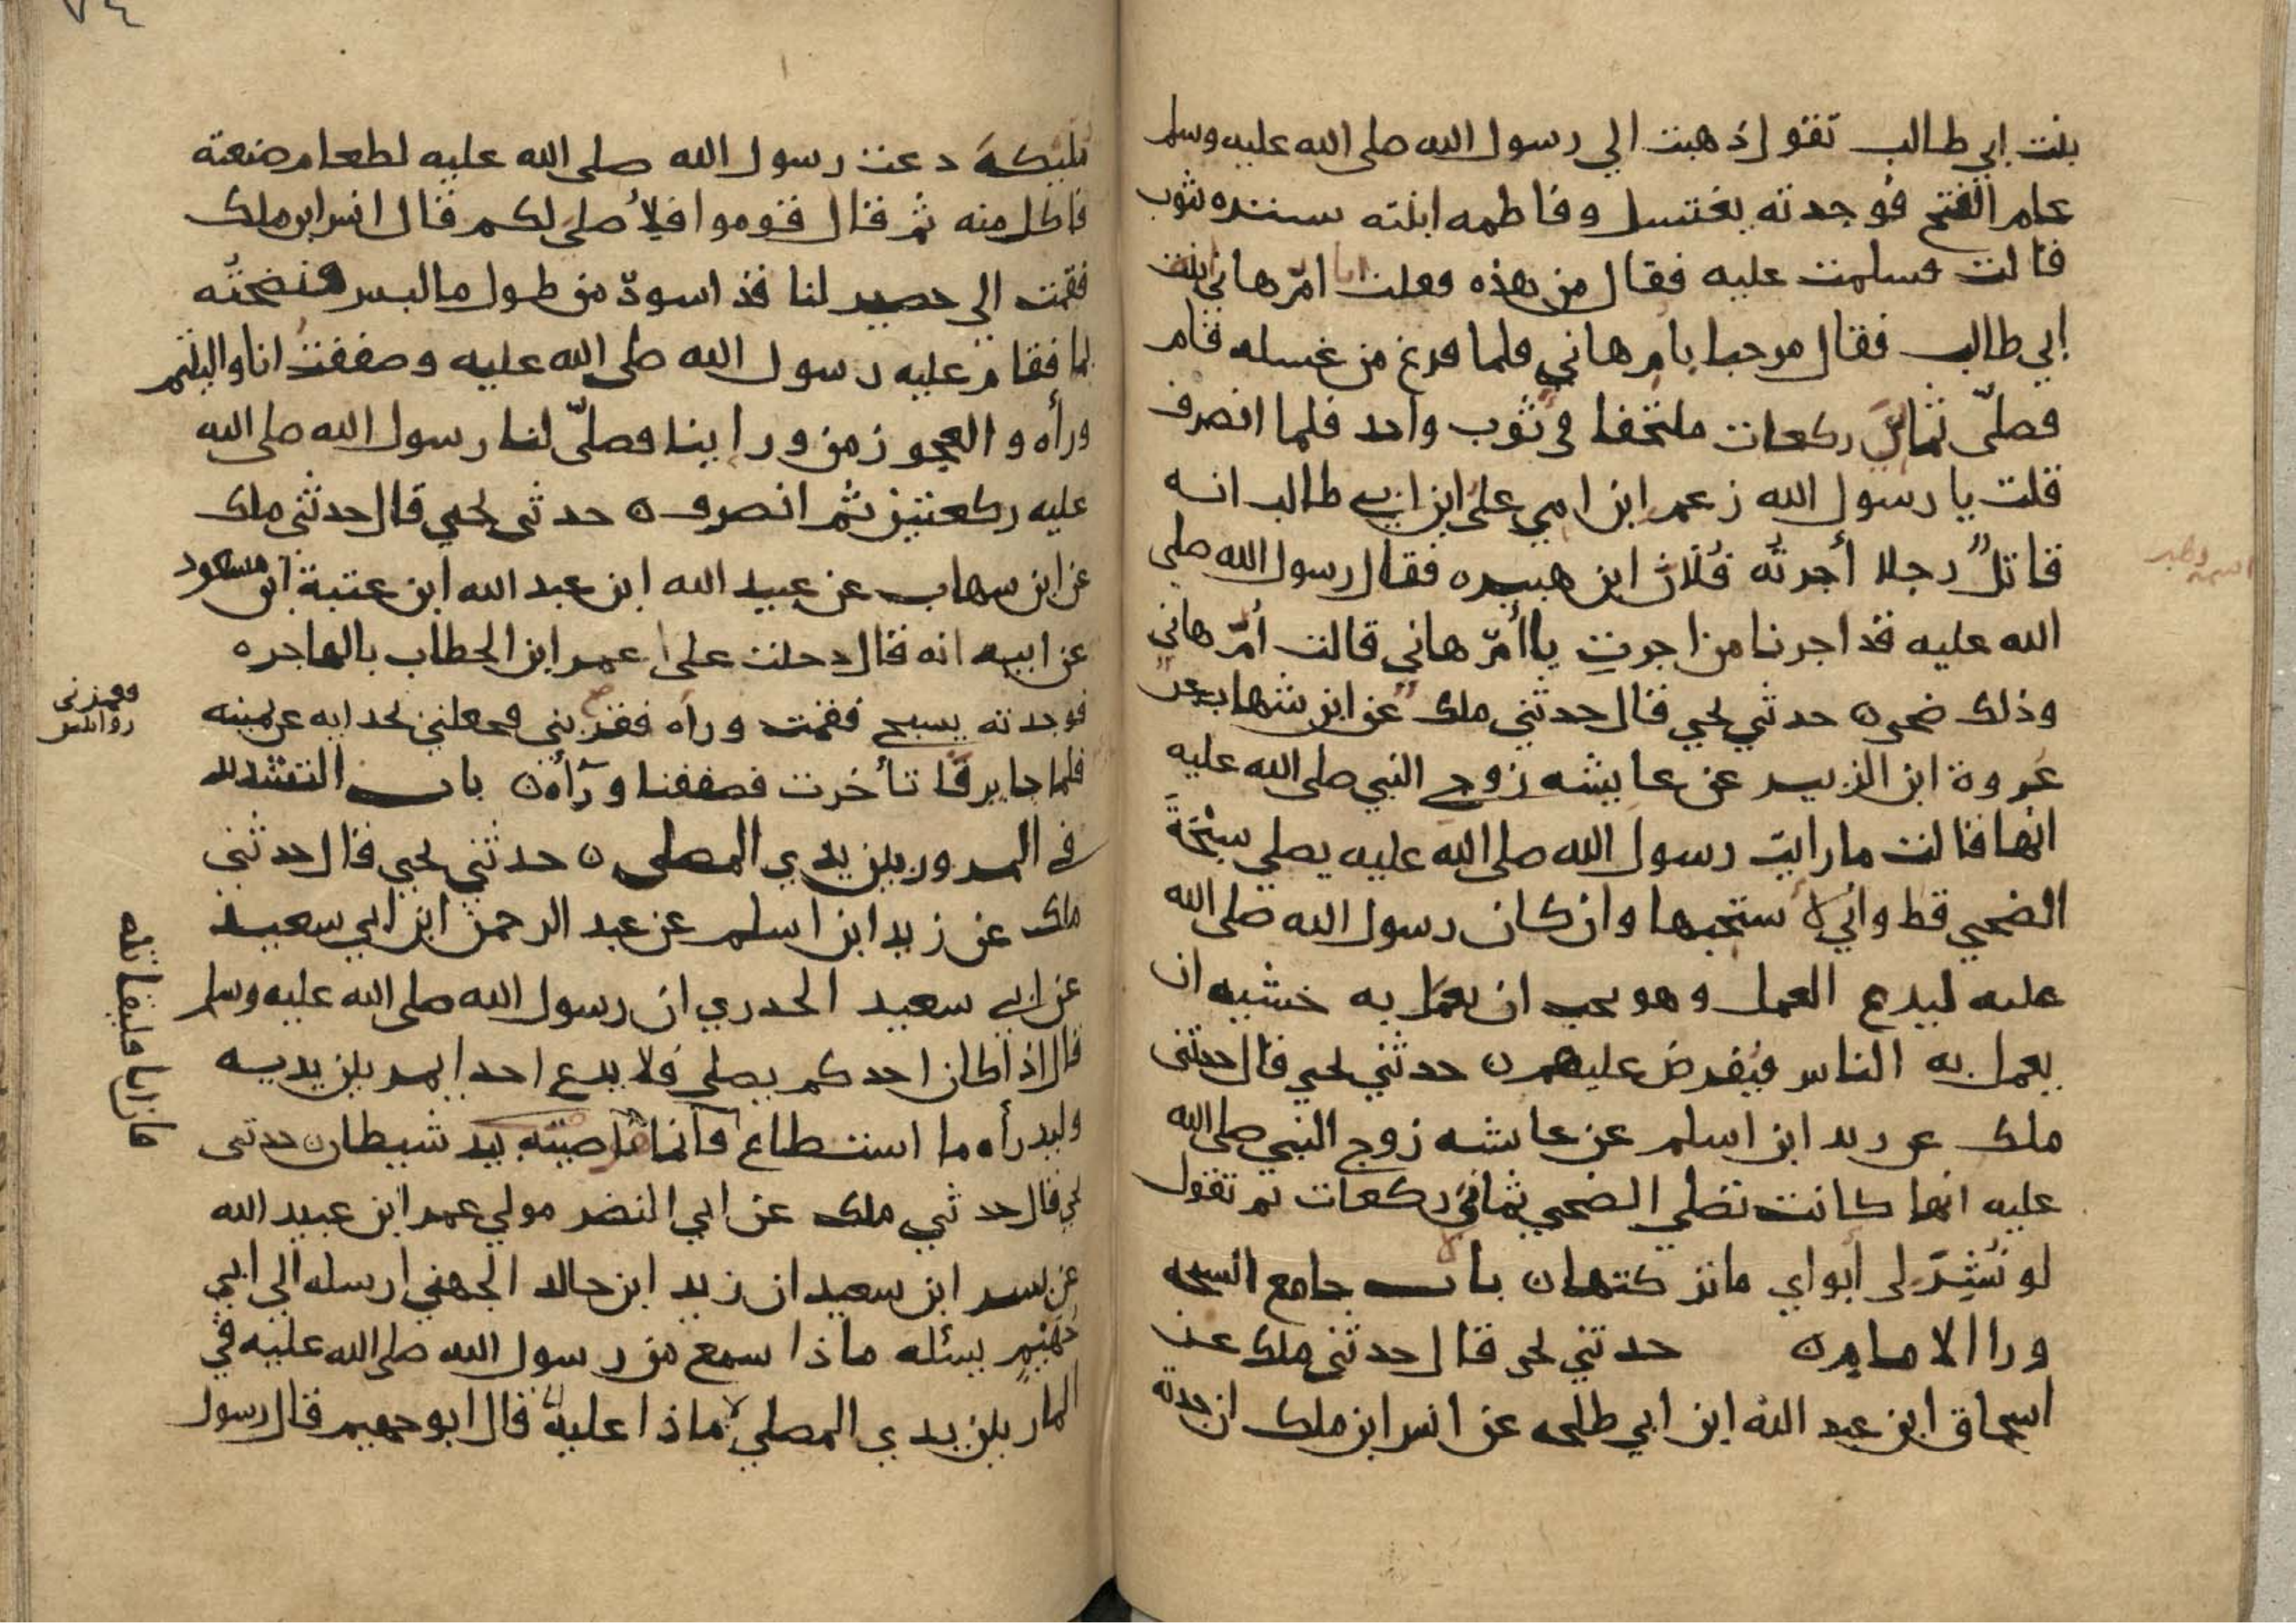 بنت ابي طالب تقول ذهبت الي رسول الله صلى الله عليه وسلم
عام الفتح فوجدته يغتسل وفاطمه ابنته تستره بثوب
قالت فسلمت عليه فقال من هذه فقلت انا امّ هاني ابنت
ابي طالب فقال مرحبا بام هاني فلما فرغ من غسله قام
فصلّى ثمان ركعات ملتحفا في ثوب واحد فلما انصرف
قلت يا رسول الله زعم ابن امي علي ابن ابي طالب انه
قاتلٌ رجلا أجرتُه فُلان ابن هبيره فقال رسول الله صلى
الله عليه قد اجرنا من اجرتِ يا أمّ هاني قالت أمّ هاني
وذلك ضحى ه حدثني يحيى قال حدثني ملك عن ابن شهاب عن
عروة ابن الزبير عن عايشه زوج النبي صلى الله عليه
انها قالت ما رايت رسول الله صلى الله عليه يصلي سبْحَةَ
الضحي قط واني لأستحبها وان كان رسول الله صلى الله
عليه ليدع العمل وهو يحب ان يعمل به خشيه ان
يعمل به الناس فيُفرض عليهم ه حدثني يحيى قال حدثني
ملك عن زيد ابن اسلم عن عائشه زوج النبي صلى الله
عليه انها كانت تصلي الضحي ثماني ركعات ثم تقول
لو نُشِرَ لى أبواي ما تركتها ه باب جامع السبحه
ورا الامام ه حدثني يحيى قال حدثني ملك عن
اسحاق ابن عبد الله ابن ابي طلحه عن انس ابن ملك ان جدته
مليكة دعت رسول الله صلى الله عليه لطعام صنعته
فاكل منه ثم قال قوموا فلأصلي لكم قال انس ابن ملك
فقمت الى حصير لنا قد اسودّ من طول ما لبس فنضحتُه
بما فقام عليه رسول الله صلى الله عليه وصففتُ انا واليتيم
ورأه والعجوز من وراينا فصلّى لنا رسول الله صلى الله
عليه ركعتين ثم انصرف ه حدثني يحيى قال حدثني ملك
عن ابن شهاب عن عبيد الله ابن عبد الله ابن عتبة ابن مسعود
عن ابيه انه قال دخلت على عمر ابن الخطاب بالهاجره
فوجدته يسبح فقمت وراه فقرّبني فجعلني بحدايه عن يمينه
فلما جا يرفا تأخرت فصففنا ورآه ه باب التشديد
في المرور بين يدي المصلى ه حدثني يحيى قال حدثني
ملك عن زيد ابن اسلم عن عبد الرحمن ابن ابي سعيد
عن ابي سعيد الخدري ان رسول الله صلى الله عليه وسلم
قال اذا كان احدكم يصلي فلا يدع احدا يمر بين يديه
وليدرأه ما استطاع فانما شيطان حدثنى
يحيى قال حدثني ملك عن ابي النضر مولي عمر ابن عبيد الله
عن بسر ابن سعيد ان زيد ابن خالد الجهني ارسله الى ابي
جُهَيْم يسئله ماذا سمع من رسول الله صلى الله عليه في
المار بين يدي المصلي ماذا عليه قال ابو جهيم قال رسول